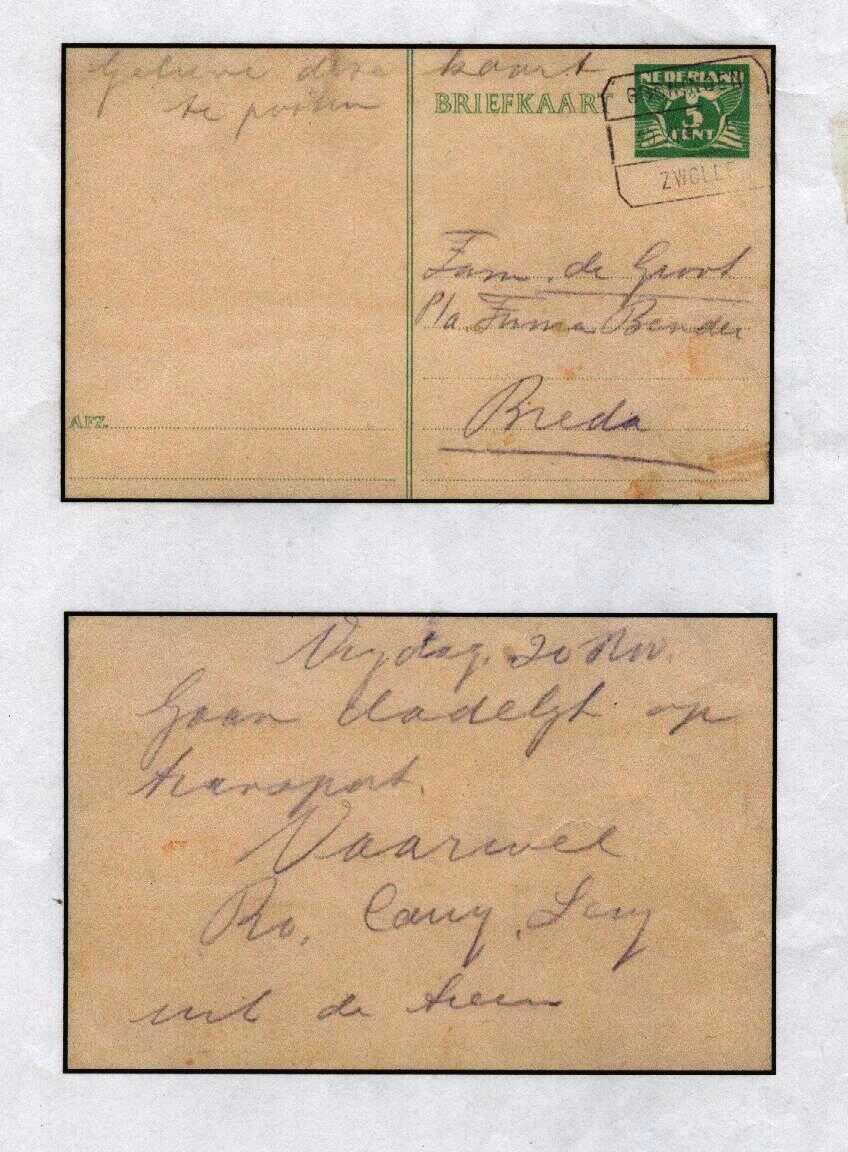 Gelieve deze kaart
te posten
BRIEFKAART
NEDERLAND
5
CENT
ZWOLLE
Fam. de Groot
P/a Firma Bender
Breda
AFZ.
Vrydag. 20 Nov.
Gaan dadelyk op
transport.
Vaarwel
Ro,
uit de trein